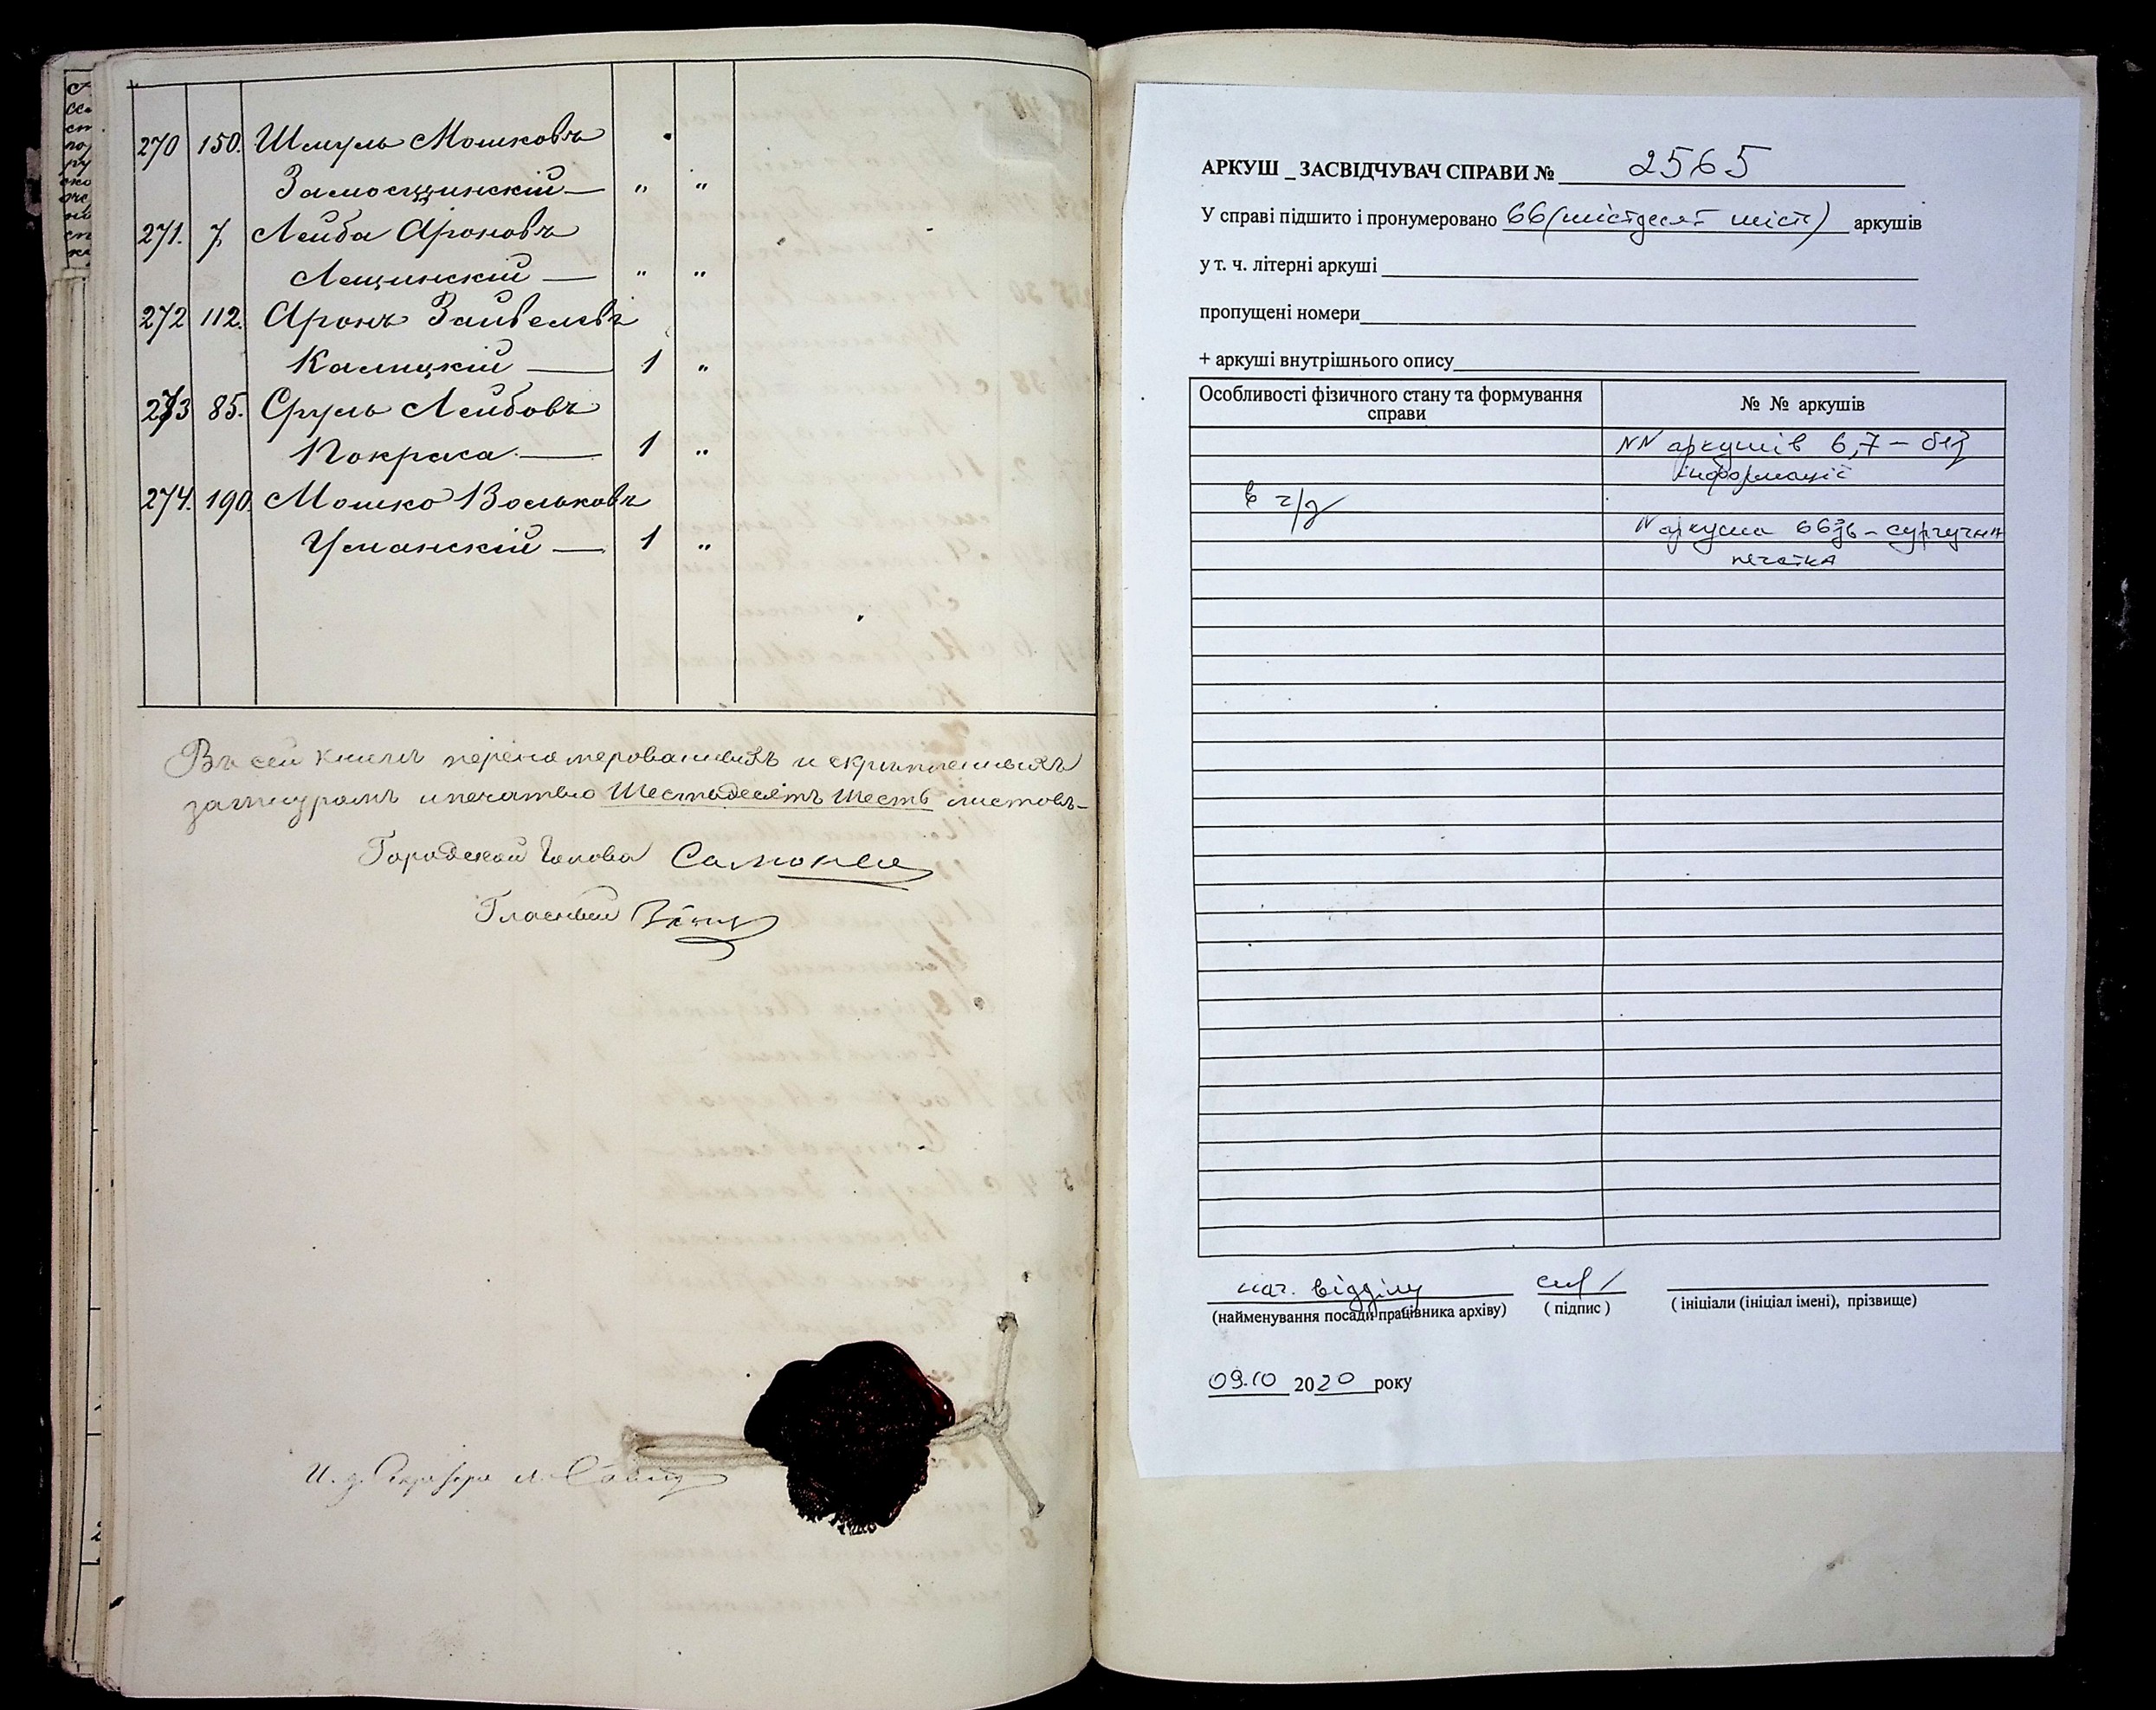 270 150. Шмуль Мошковъ
Замосщинскій — " "
271. 7. Лейба Ароновъ
Лещинскій — " "
272 112. Аронъ Зайвелевъ
Калицкій — 1 "
273 85. Сруль Лейбовъ
Покраса — 1 "
274. 190. Мошко Вольковъ
Уманскій — 1 "
Въ сей книгѣ перенамерованныхъ и скрѣпленныхъ
за шнуромъ и печатью Шестьдесятъ Шесть листовъ —
Городской Голова
Гласный
И. д. Секретаря
АРКУШ _ ЗАСВІДЧУВАЧ СПРАВИ № 2565
У справі підшито і пронумеровано 66 (шістдесят шість) аркушів
у т. ч. літерні аркуші
пропущені номери
+ аркуші внутрішнього опису
Особливості фізичного стану та формування справи
№ № аркушів
NN аркушів 6,7 – без
інформації
N аркуша 66зв – сургучна
печатка
нач. відділу
(найменування посади працівника архіву) ( підпис ) ( ініціали (ініціал імені), прізвище)
09.10 2020 року